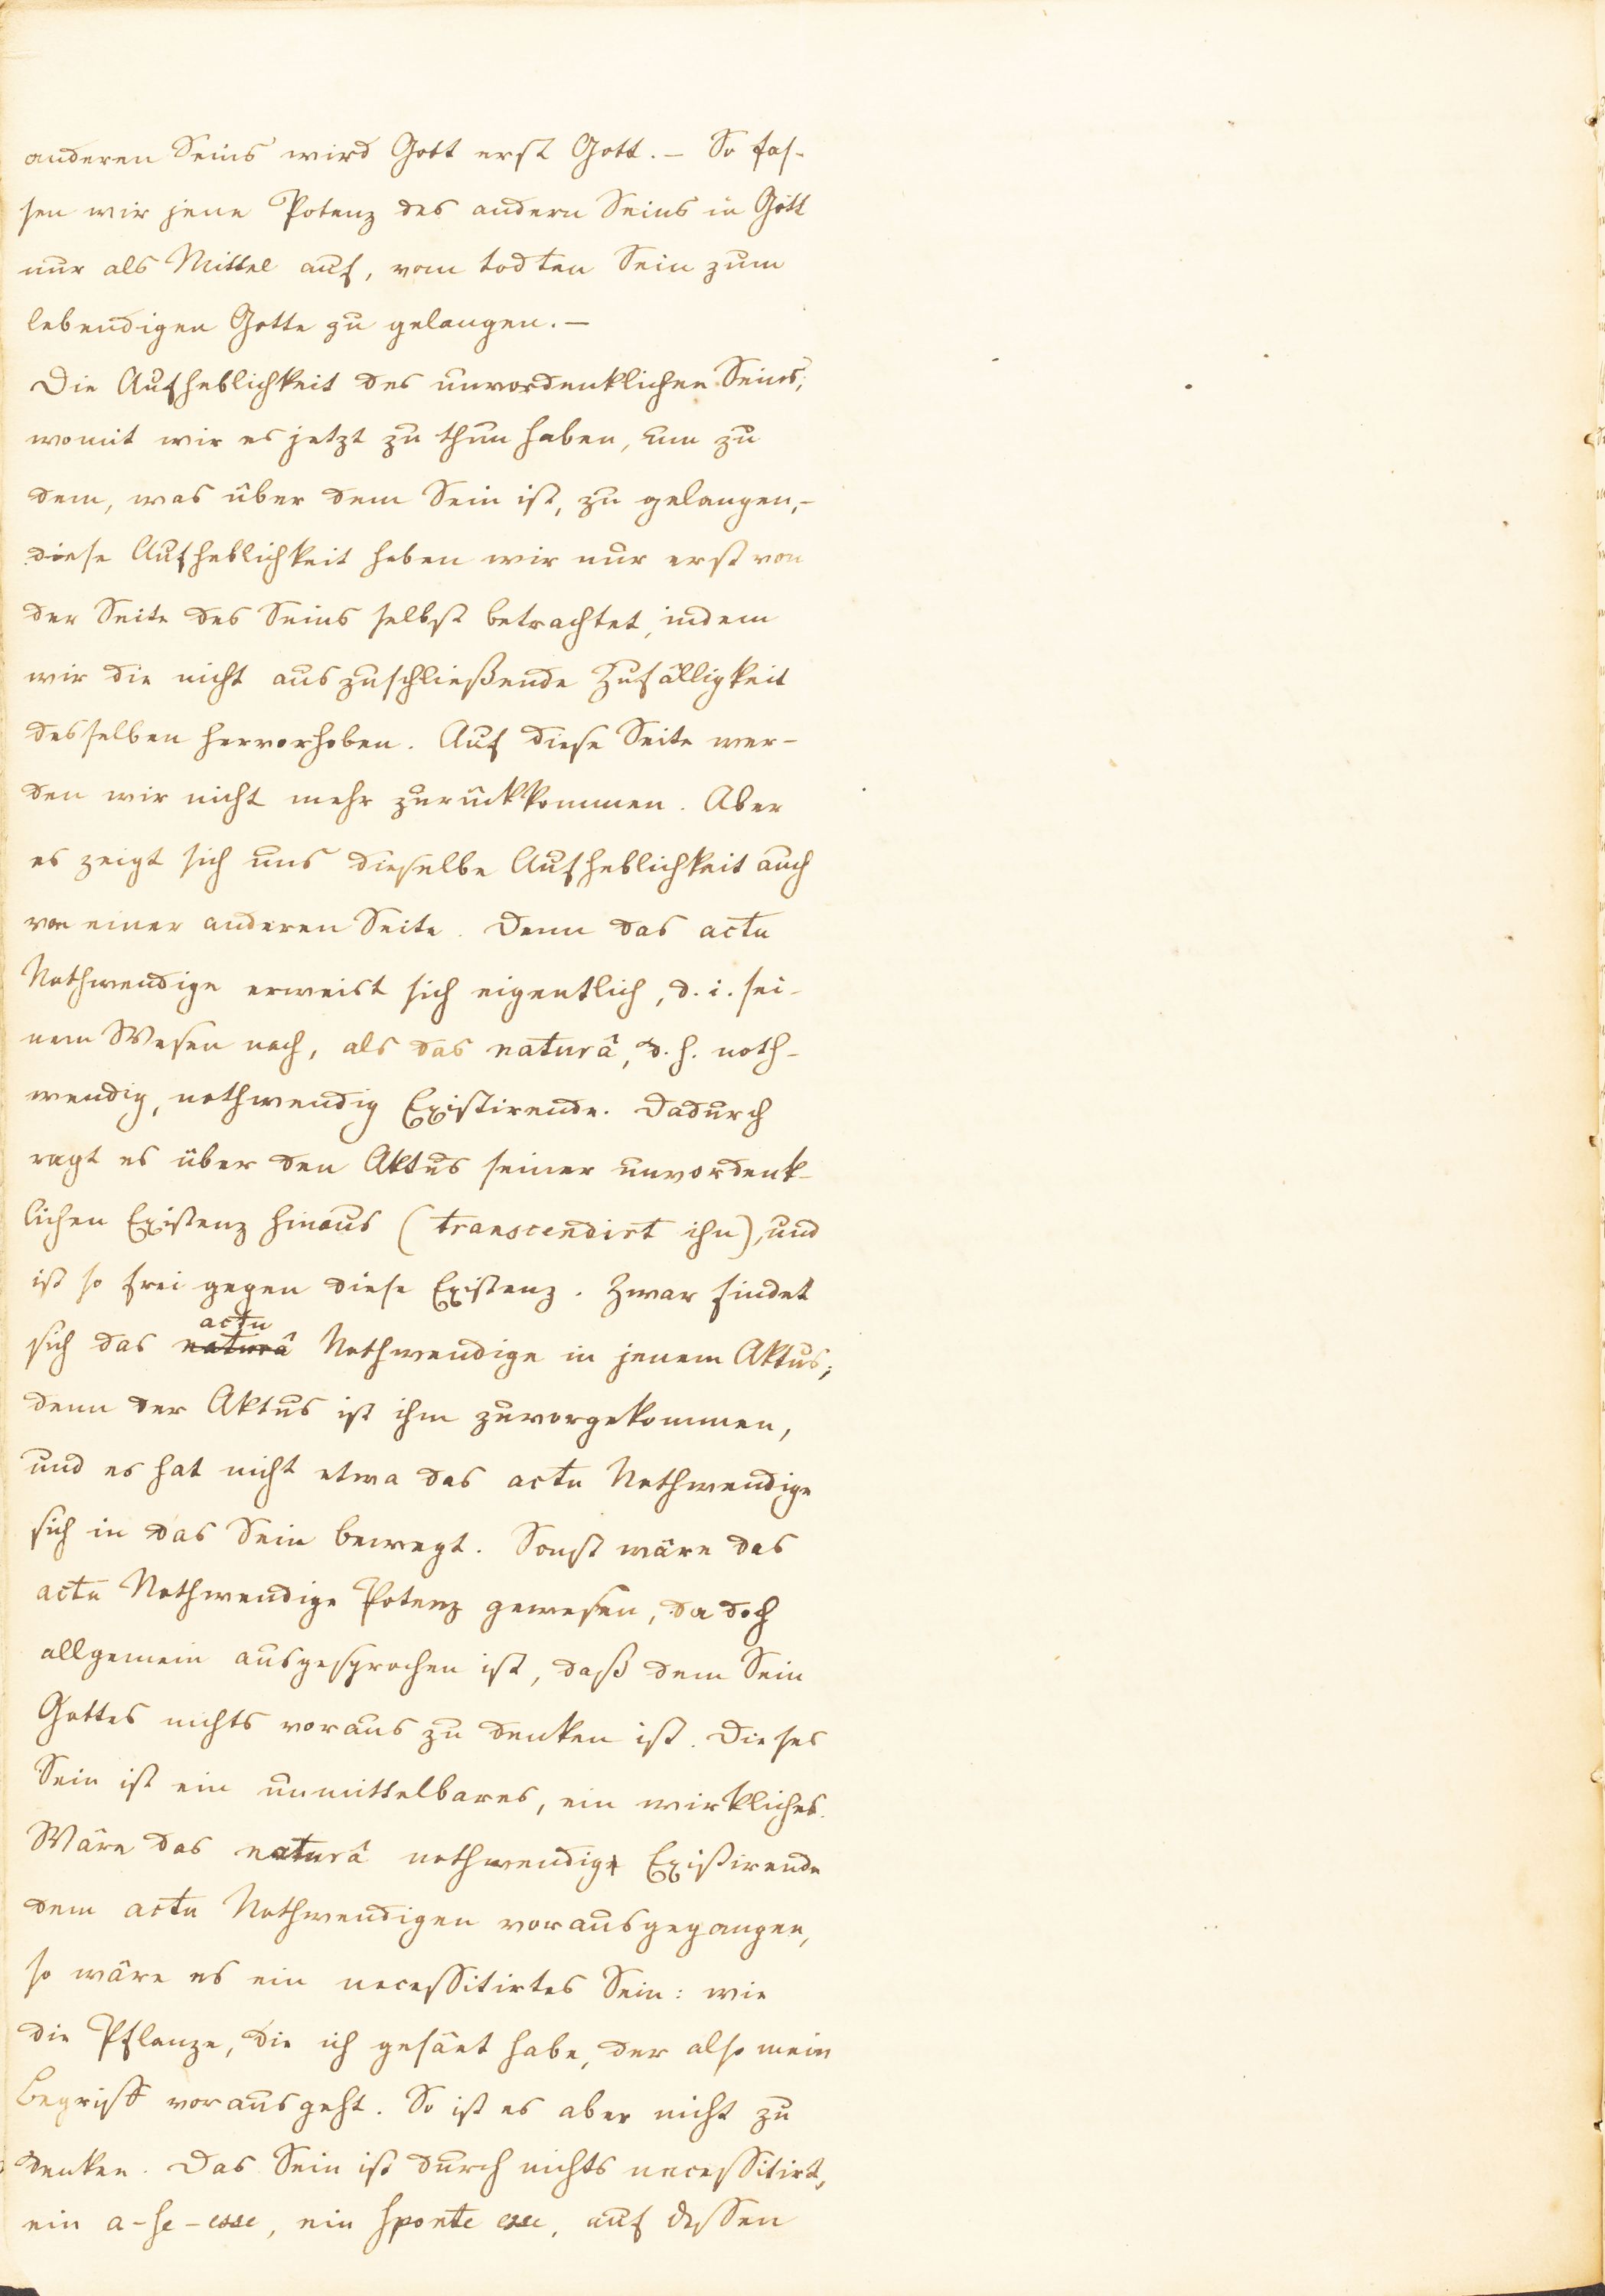 anderen Seins wird Gott erst Gott. – So fas-
sen wir jene Potenz des andern Seins in Gott
nur als Mittel auf, vom todten Sein zum
lebendigen Gotte zu gelangen. –
Die Aufheblichkeit des unvordenklichen Seins,
womit wir es jetzt zu thun haben, um zu
dem, was über dem Sein ist, zu gelangen, –
diese Aufheblichkeit haben wir nur erst von
der Seite des Seins selbst betrachtet, indem
wir die nicht auszuschließende Zufälligkeit
desselben hervorhoben. Auf diese Seite wer-
den wir nicht mehr zurückkommen. Aber
es zeigt sich uns dieselbe Aufheblichkeit auch
von einer anderen Seite. Denn das actu
Nothwendige erweist sich eigentlich, d. i. sei-
nem Wesen nach, als das naturâ, d. h. noth-
wendig, nothwendig Existirende. Dadurch
ragt es über den Aktus seiner unvordenk-
lichen Existenz hinaus (transcendirt ihn), und
ist so frei gegen diese Existenz. Zwar findet
actu
sich das naturâ Nothwendige in jenem Aktus;
denn der Aktus ist ihm zuvorgekommen,
und es hat nicht etwa das actu Nothwendige
sich in das Sein bewegt. Sonst wäre das
actu Nothwendige Potenz gewesen, da doch
allgemein ausgesprochen ist, daß dem Sein
Gottes nichts voraus zu denken ist. Dieses
Sein ist ein unmittelbares, ein wirkliches.
Wäre das naturâ nothwendig Existirende
dem actu Nothwendigen vorausgegangen,
so wäre es ein necessitirtes Sein: wie
die Pflanze, die ich gesäet habe, der also mein
Begriff voraus geht. So ist es aber nicht zu
denken. Das Sein ist durch nichts necessitirt,
ein a-se-esse, ein sponte esse, auf dessen